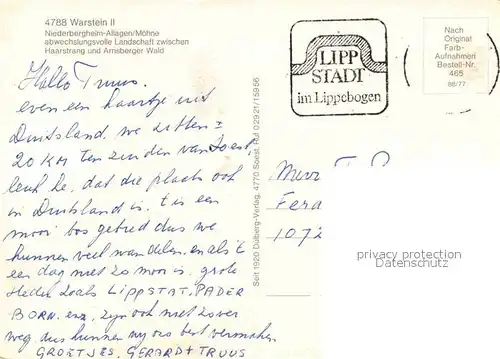 4788 Warstein II
Niederbergheim-Allagen/Möhne
abwechslungsvolle Landschaft zwischen
Haarstrang und Arnsberger Wald
LIPP
STADT
im Lippebogen
Nach
Original
Farb-
Aufnahmen
Bestell-Nr.
465
88/77
Hallo Truus.
even een kaartje uit
Duitsland. we zitten ±
20 KM ten zuiden van Soest,
leuk he, dat die plaats ook
in Duitsland is. t is een
mooi bos gebied dus we
kunnen veel wandelen. en als 't
een dag niet zo mooi is, grote
steden zoals LIPPSTAT, PADER
BORN. enz. zijn ook niet zo ver
weg dus kunnen wij ons best vermaken
GROETJES. GERARD + TRUUS
Seit 1920 Dülberg-Verlag, 4770 Soest, Ruf 0 29 21/1 59 66
1072
privacy protection
Datenschutz